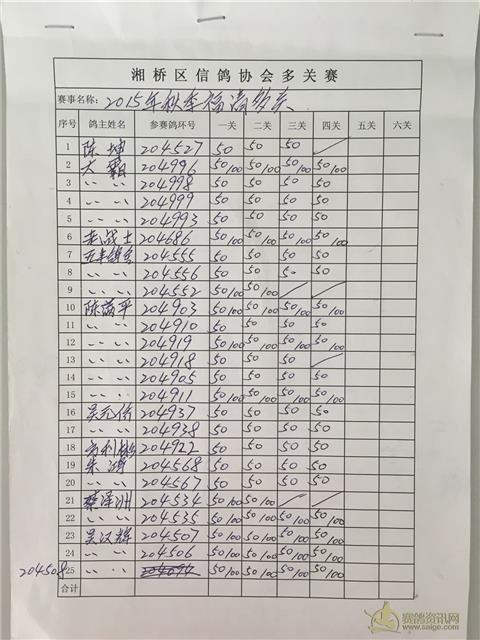 湘桥区信鸽协会多关赛
赛事名称: 2015年秋季 多关
序号 鸽主姓名 参赛鸽环号 一关 二关 三关 四关 五关 六关
1 陈坤 204527 50 50 50 /
2 大霸 204996 50/100 50/100 50/100 50/100
3 〃 〃 204998 50 50 50 50
4 〃 〃 204999 50 50 50 50
5 〃 〃 204993 50 50 50 50
6 老战士 204686 50/100 50/100 50/100 50/100
7 204555 50 50 50 50
8 〃 〃 204556 50 50 50 50
9 〃 〃 204552 50/100 50/100 / /
10 陈 平 204903 50/100 50/100 50/100 50/100
11 〃 〃 204910 50 50 50 50
12 〃 〃 204919 50/100 50/100 50/100 50/100
13 〃 〃 204918 50 50 50 /
14 〃 〃 204905 50 50 50 50
15 〃 〃 204911 50/100 50/100 50/100 50/100
16 吴 204937 50 50 50 50
17 〃 〃 204938 50 50 50 50
18 204922 50/100 50/100 50/100 50/100
19 朱 204568 50 50 50 50
20 〃 〃 204567 50 50 50 50
21 蔡泽洲 204534 50/100 50/100 / /
22 〃 〃 204535 50/100 50/100 50/100 50/100
23 吴汉辉 204507 50/100 50/100 50/100 50/100
24 〃 〃 204506 50/100 50/100 50/100 50/100
204508 25 〃 〃 50/100 50/100 50/100 50/100
合计
赛鸽资讯网
www.saige.com